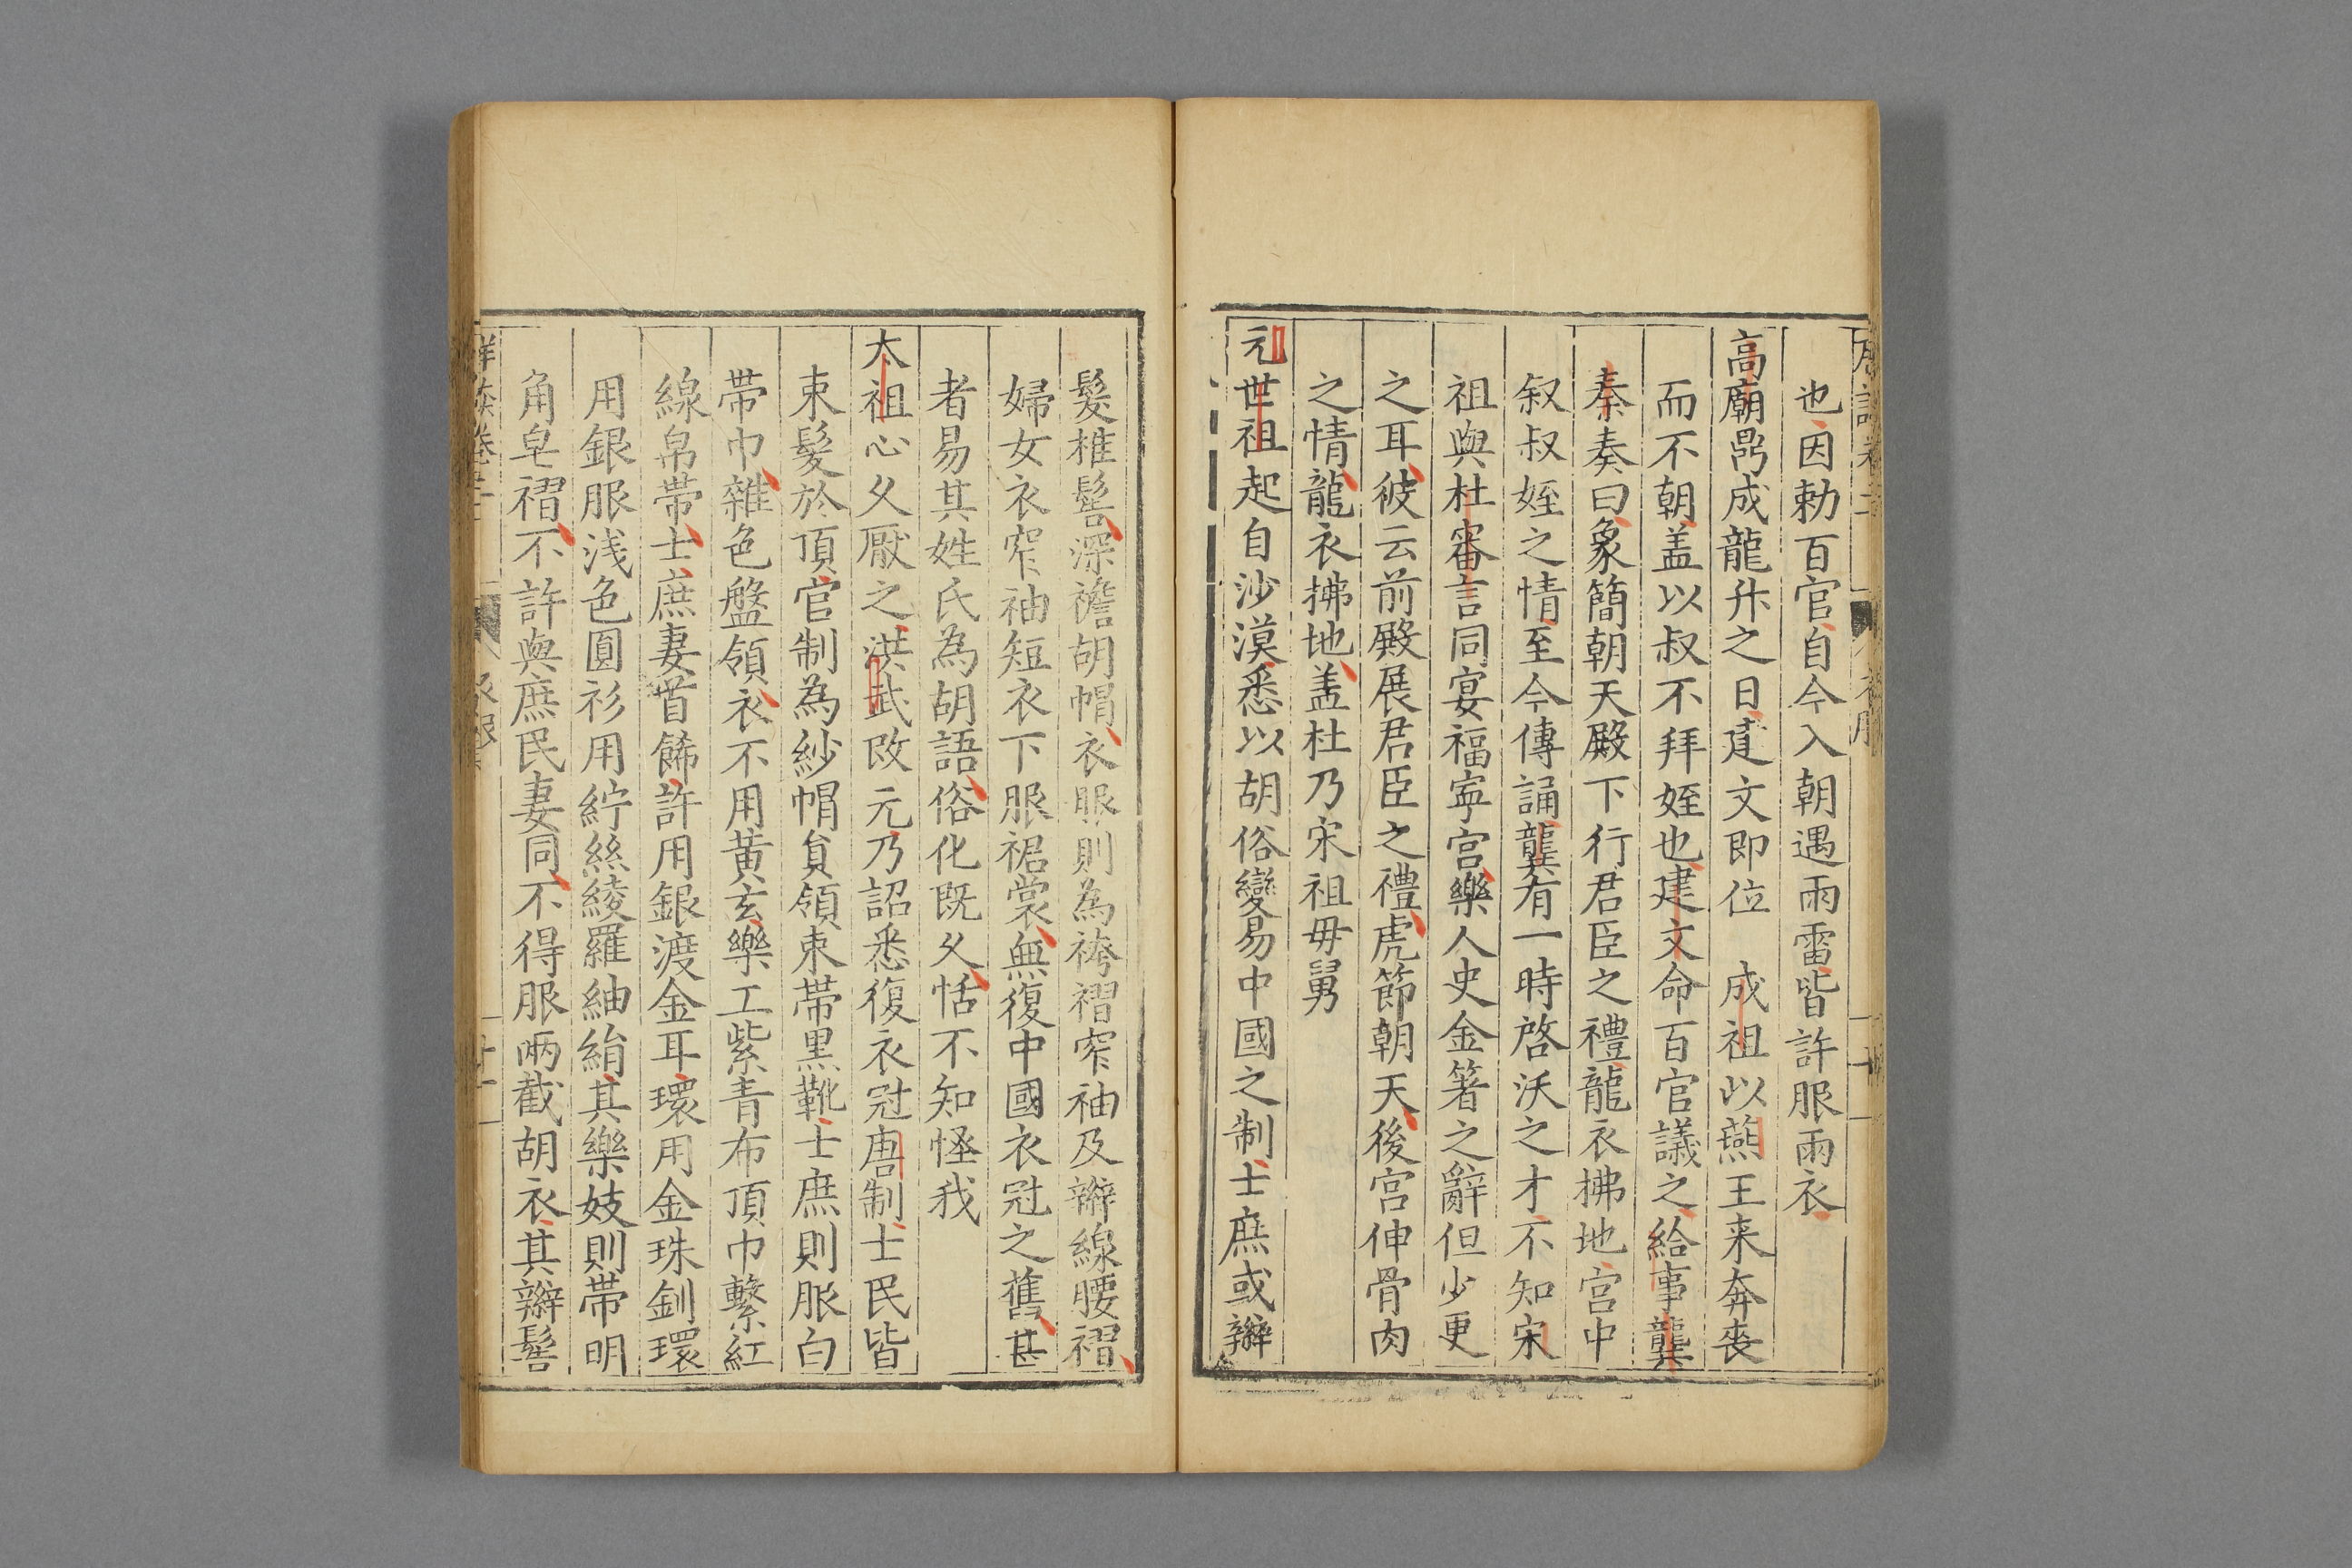 也因勅百官自今入朝遇雨雪皆許服雨衣
高廟鼎成龍升之日建文即位　成祖以燕王来奔喪
而不朝盖以叔不拜姪也建文命百官議之給事龔
泰奏曰象簡朝天殿下行君臣之禮龍衣拂地宫中
叙叔姪之情至今傳誦龔有一時啓沃之才不知宋
祖與杜審言同宴福寧宫樂人史金箸之辭但少更
之耳彼云前殿展君臣之禮虎節朝天後宫伸骨肉
之情龍衣拂地盖杜乃宋祖毋舅
元世祖起自沙漠悉以胡俗變易中國之制士庶或辮
髮椎髻深襜胡帽衣服則為袴褶窄袖及辮線腰褶
婦女衣窄袖短衣下服裙裳無復中國衣冠之舊甚
者易其姓氏為胡語俗化既久恬不知怪我
太祖心久厭之洪武改元乃詔悉復衣冠唐制士民皆
束髮於頂官制為紗帽負領束帶黒靴士庶則服白
帶巾雜色盤領衣不用黃玄樂工紫青布頂巾繫紅
線帛帶士庶妻首飾許用銀渡金耳環用金珠釧環
用銀服浅色圓衫用紵絲綾羅紬絹其樂妓則帶明
角皂褶不許與庶民妻同不得服兩截胡衣其辮髻